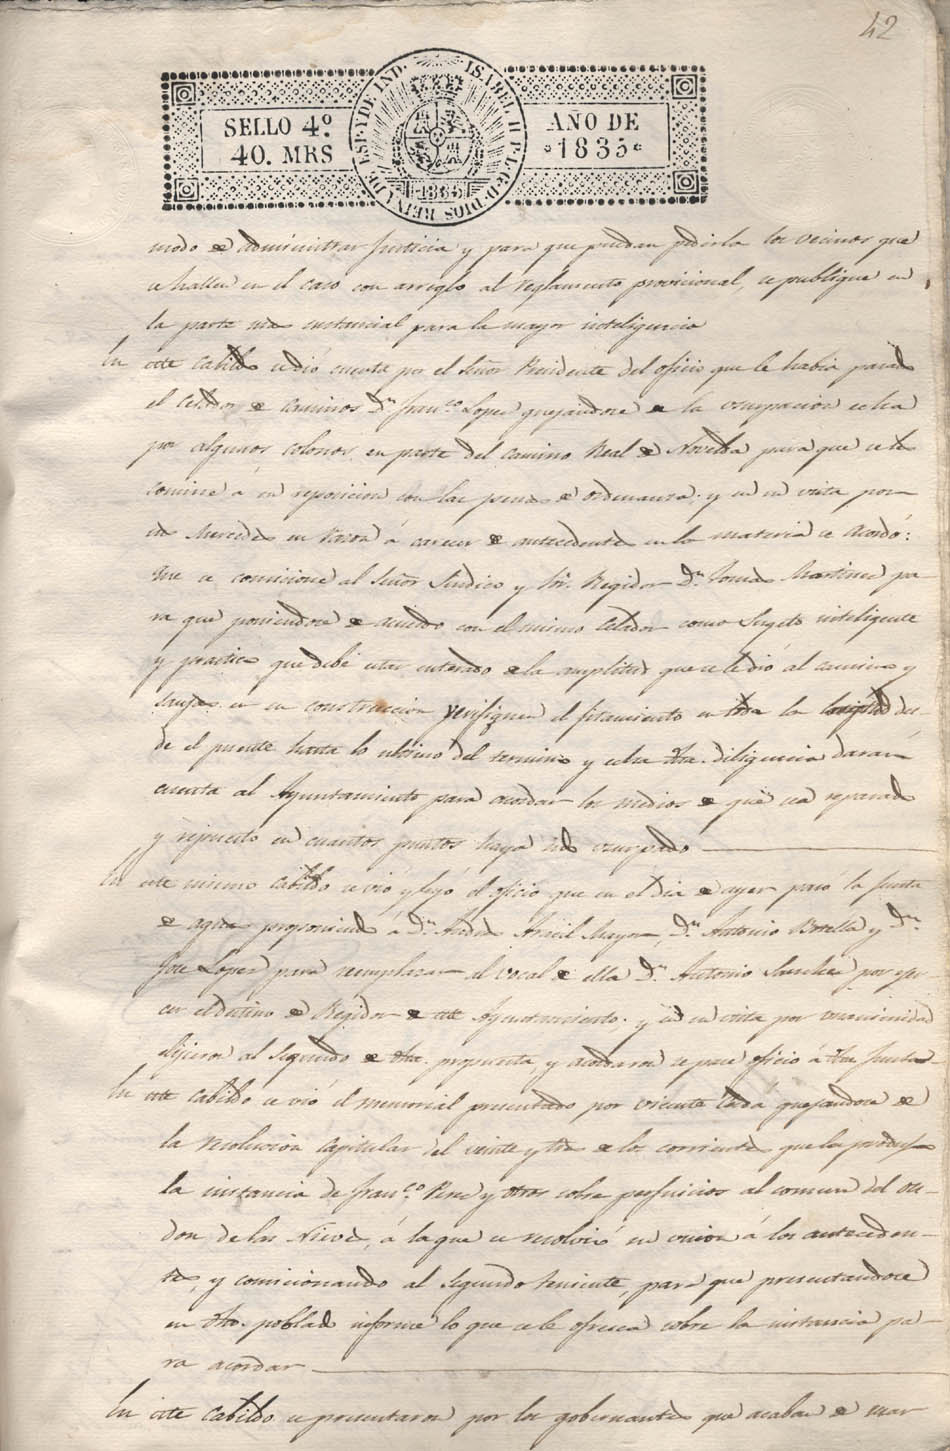 42
SELLO 4º
40. MRS
ISABEL II P. L. G. D. DIOS REINA DE ESP. Y DE IND.
1835
AÑO DE
1835
modo de administrar Justicia y para que puedan pedirla los vecinos que
se hallen en el caso con arreglo al reglamento provicional, se publique en
la parte mas sustancial para la mayor inteligencia
En este Cabildo se dió cuenta por el Señor Presidente del oficio que le habia pasado
el Celador de Caminos Dn Franco Lopez quejandose de la ocupacion echa
por algunos colonos en parte del camino Real de Novelda para que se les
comine á su reposicion con las penas de ordenanza; y en su vista por
sus Mercedes en razon á carecer de antecedentes en la materia se acordó:
Que se comicione al Señor Sindico y Sor Regidor Dn Tomas Martinez pa-
ra que poniendose de acuerdo con el mismo Celador como Sugeto inteligente
y practico que debé estar enterado de la amplitud que se le dió al camino y
sanjas en su construccion verifiquen el fitamiento en toda la longitud des-
de el puente hasta lo ultimo del termino y echa dha. diligencia daran
cuenta al Ayuntamiento para acordar los medios de que sea reparado
y repuesto en cuantos puntos haya sido usurpado
En este mismo Cabildo se vió y leyó el oficio que en el dia de ayer pasó la Junta
de aguas proponiendo á Dn Andres Aracil Mayor, Dn Antonio Botella y Dn
Jose Lopez para remplazar al vocal de ella Dn Antonio Sanchez por ejer-
cer el destino de Regidor de este Ayuntamiento; y en su vista por unanimidad
elijieron al Segundo de dha. propuesta, y acordaron se pase oficio á dha Junta
En este Cabildo se vió el memorial presentado por Vicente quejandose de
la resolucion Capitular del veinte y tres de los corrientes que la produjo
la instancia de Franco Perez y otros sobre perjuicios al comun del
don de las Nieves, á la que se resolvió su union á los anteceden-
tes, y comicionando al Segundo teniente, para que presentandose
en dho. poblado informe lo que se le ofrezca sobre la instancia pa-
ra acordar
En este Cabildo se presentaron por los gobernantes que acaban de